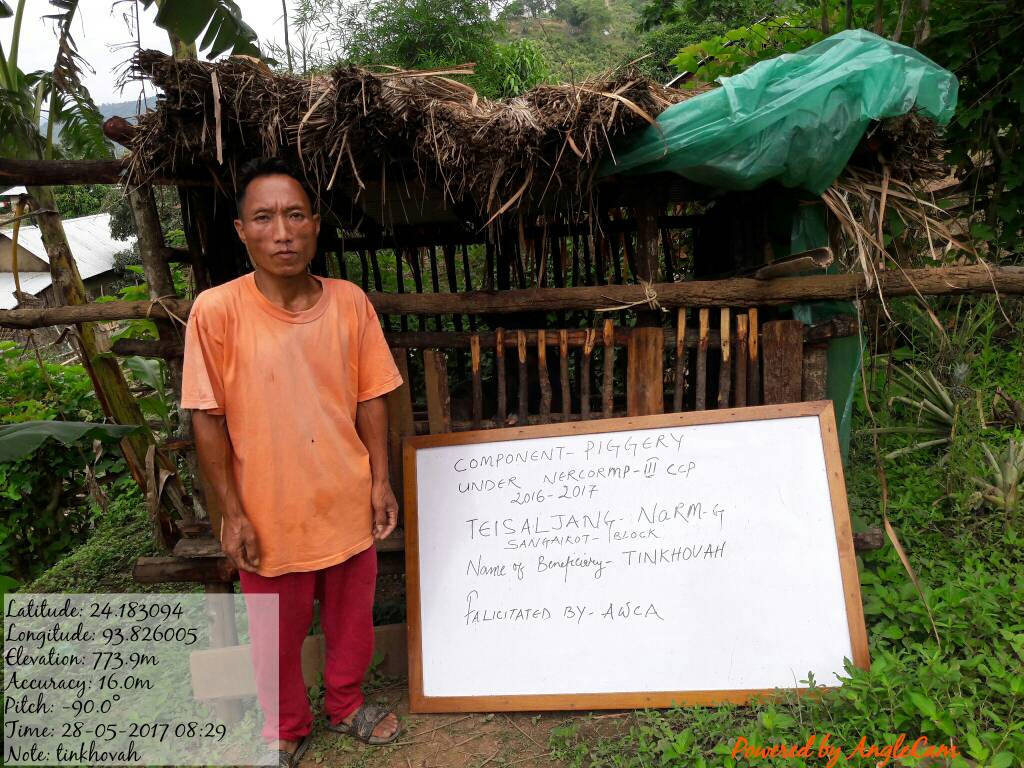 COMPONENT- PIGGERY
UNDER NERCORMP-III CCP
2016-2017
TEISALJANG- NaRM-G
SANGAIKOT- BLOCK
Name of Beneficiery- TINKHOVAH
FALICITATED BY- AWCA
Latitude: 24.183094
Longitude: 93.826005
Elevation: 773.9m
Accuracy: 16.0m
Pitch: -90.0°
Time: 28-05-2017 08:29
Note: tinkhovah
Powered by AngleCam